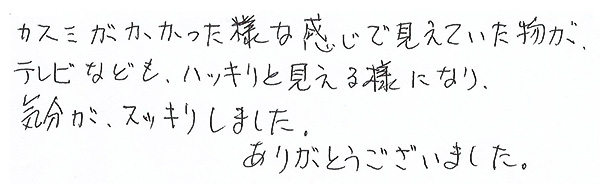 カスミがかかった様な感じで見えていた物が、
テレビなども、ハッキリと見える様になり、
気分が、スッキリしました。
ありがとうございました。